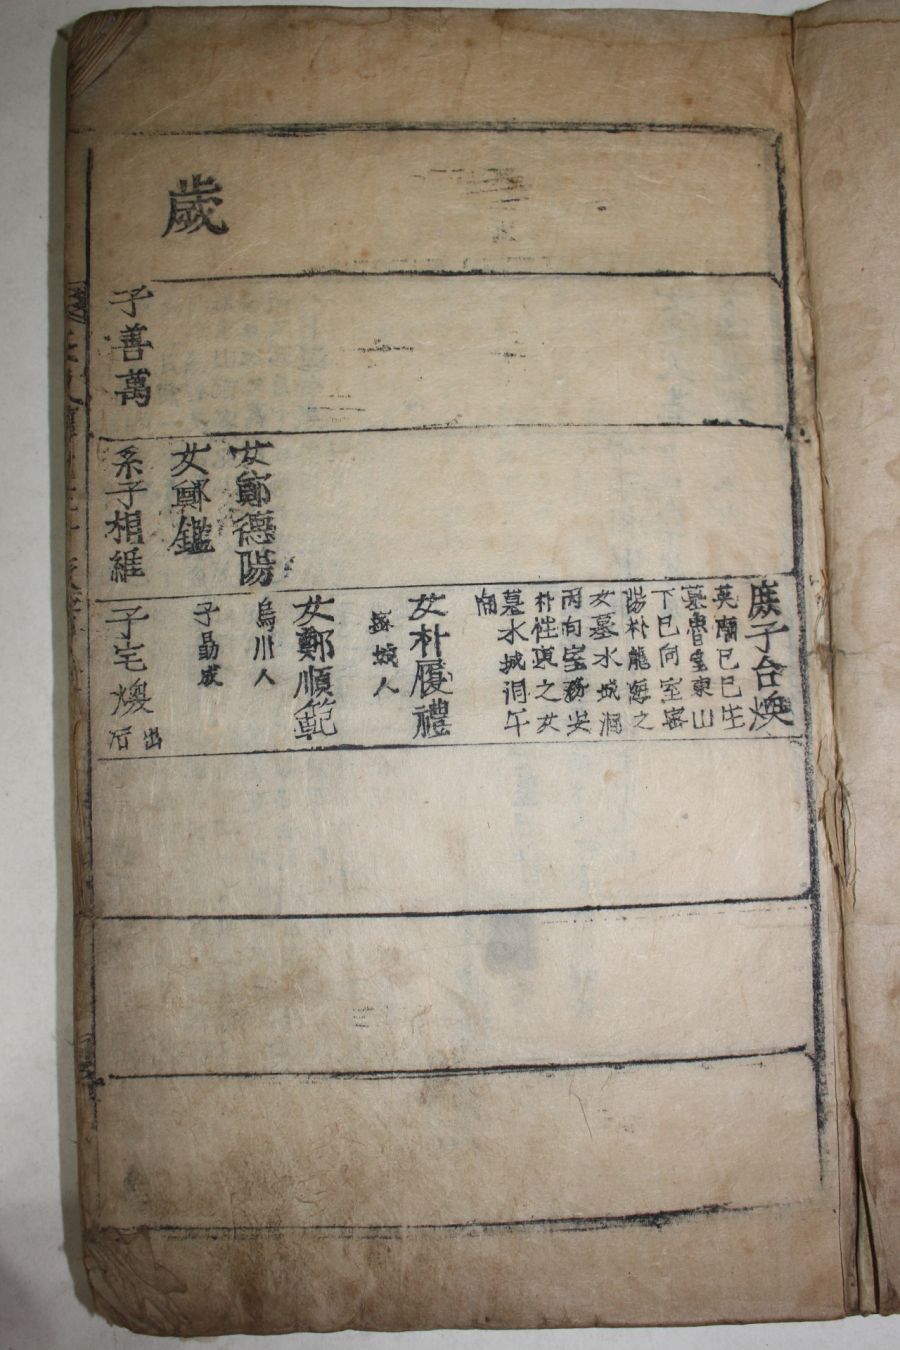 歲
子善萬
女鄭德陽
女鄭鑑
系子相維
庶子台煥
英廟己巳生
墓魯皇東山
下巳向室密
陽朴龍海之
女墓水城洞
丙向室務安
朴性東之女
墓水城洞午
向
女朴履禮
密城人
女鄭順範
烏川人
子昜成
子宅煥
出后